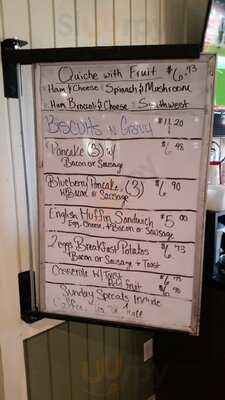 Quiche with Fruit $6.93
Ham & Cheese Spinach & Mushroom
Ham Broccoli & Cheese Southwest
Biscuits n Gravy $11.20
Pancake (3) w/ $6.98
Bacon or Sausage
Blueberry Pancake (3) $6.90
w/ Bacon or Sausage
English Muffin Sandwich $5.00
Egg, Cheese, & Bacon or Sausage
2 eggs Breakfast Potatoes $6.93
Bacon or Sausage + Toast
Casserole w/ Toast
Add fruit
Sunday Specials Include